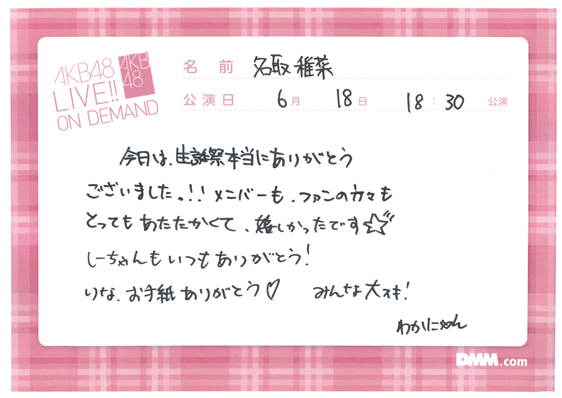 AKB48
LIVE!!
ON DEMAND
AKB
48
名前 名取稚菜
公演日 6月 18日 18:30 公演
今日は、生誕祭本当にありがとう
ございました。!! メンバーも、ファンの方々も
とってもあたたかくて、嬉しかったです☆
しーちゃんもいつもありがとう!
りな、お手紙ありがとう♡ みんな大スキ!
わかにゃん
DMM.com